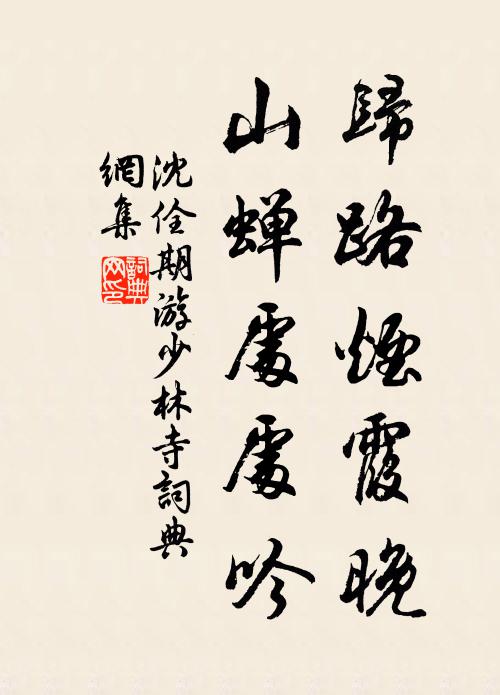 歸路煙霞晚
山蟬處處吟
沈佺期游少林寺詞典
網集
詞典
网印